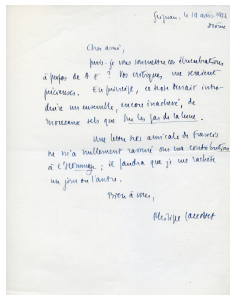 Grignan, le 19 août 1972
Drôme
Cher ami,
puis-je vous soumettre ces élucubrations
à propos de A. F. ? Vos critiques me seraient
précieuses. En principe, ce texte devrait intro-
duire un ensemble, encore inachevé, de
morceaux tels que
Une lettre très amicale de Francis
ne m'a nullement rassuré sur ma contribution
à l'Hommage ; il faudra que je me rachète
un jour ou l'autre.
Bien à vous,
Philippe Jaccottet